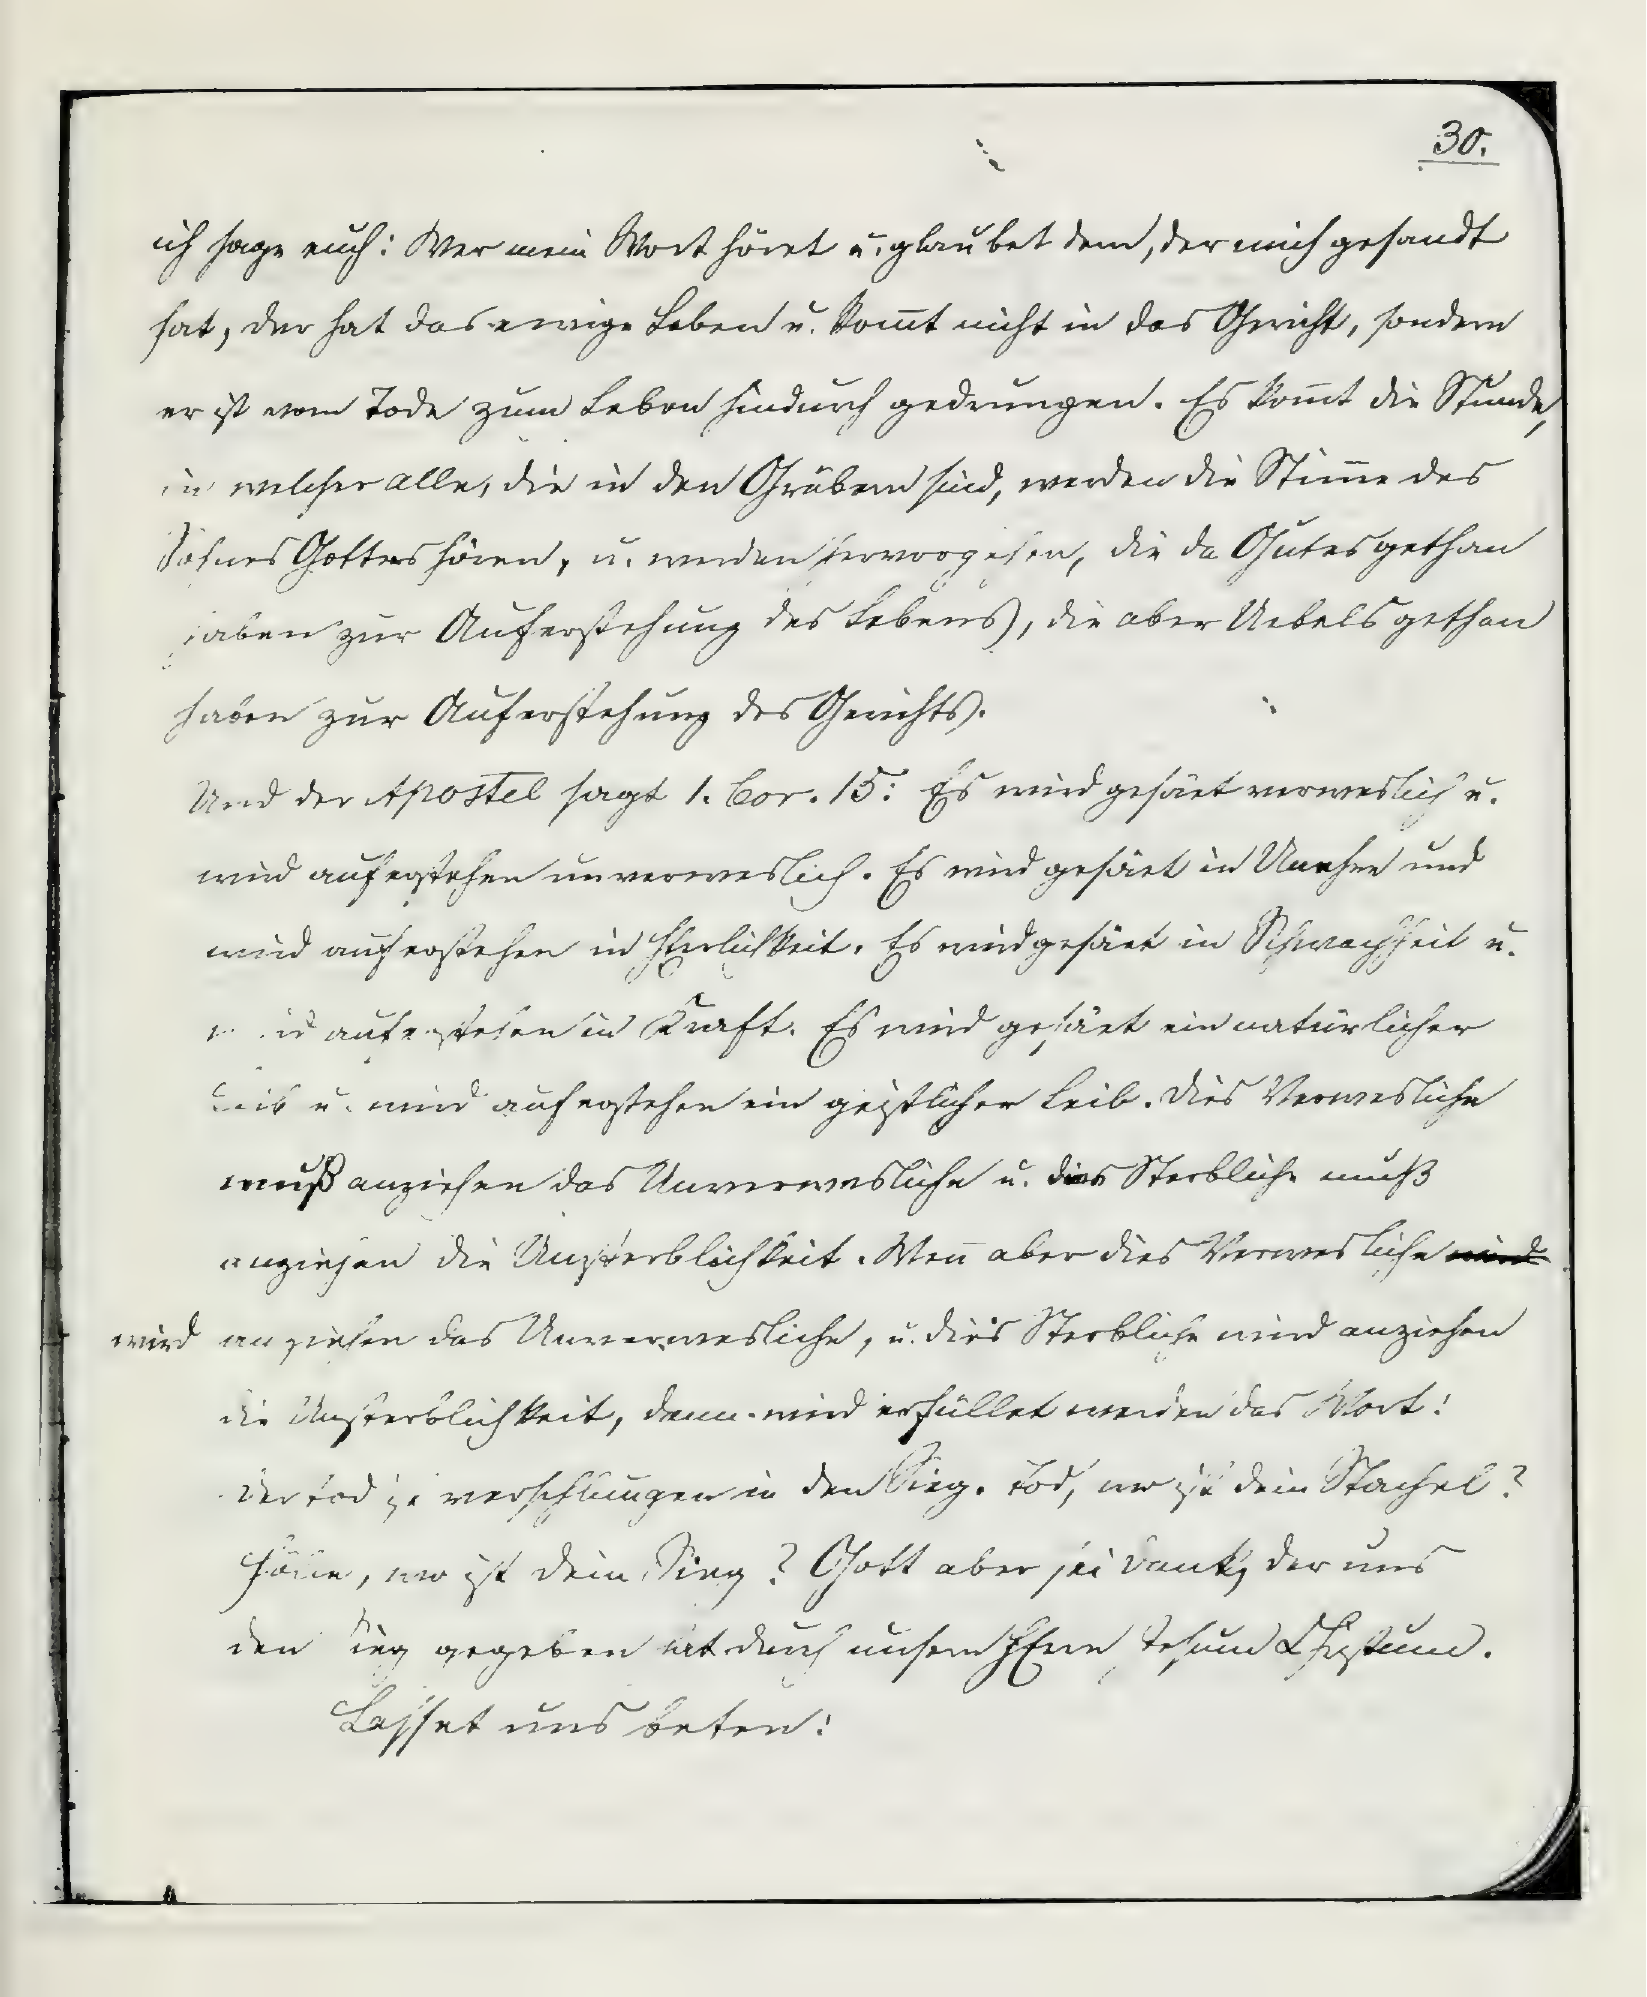 30.
ich sage euch: Wer mein Wort höret u. glaubet dem, der mich gesandt
hat, der hat das ewige Leben u. kom̅t nicht in das Gericht, sondern
er ist vom Tode zum Leben hindurch gedrungen. Es kom̅t die Stunde,
in welcher alle, die in den Gräbern sind, werden die Stim̅e des
Sohnes Gottes hören, u. werden hervorgehen, die da Gutes gethan
haben zur Auferstehung des Lebens, die aber Uebels gethan
haben zur Auferstehung des Gerichts.
Und der Apostel sagt 1. Cor. 15: Es wird gesäet verweslich u.
wird auferstehen unverweslich. Es wird gesäet in Unehre und
wird auferstehen in Herrlichkeit. Es wird gesäet in Schwachheit u.
wird auferstehen in Kraft. Es wird gesäet ein natürlicher
Leib u. wird auferstehen ein geistlicher Leib. Dies Verwesliche
muß anziehen das Unverwesliche u. dies Sterbliche muß
anziehen die Unsterblichkeit. Wen̅ aber dies Verwesliche wird
wird anziehen das Unverwesliche, u. dies Sterbliche wird anziehen
die Unsterblichkeit, dann wird erfüllet werden das Wort:
Der Tod ist verschlungen in den Sieg. Tod, wo ist dein Stachel?
Hölle, wo ist dein Sieg? Gott aber sei Dank, der uns
den Sieg gegeben hat durch unsern HErrn Jesum Christum.
Lasset uns beten: